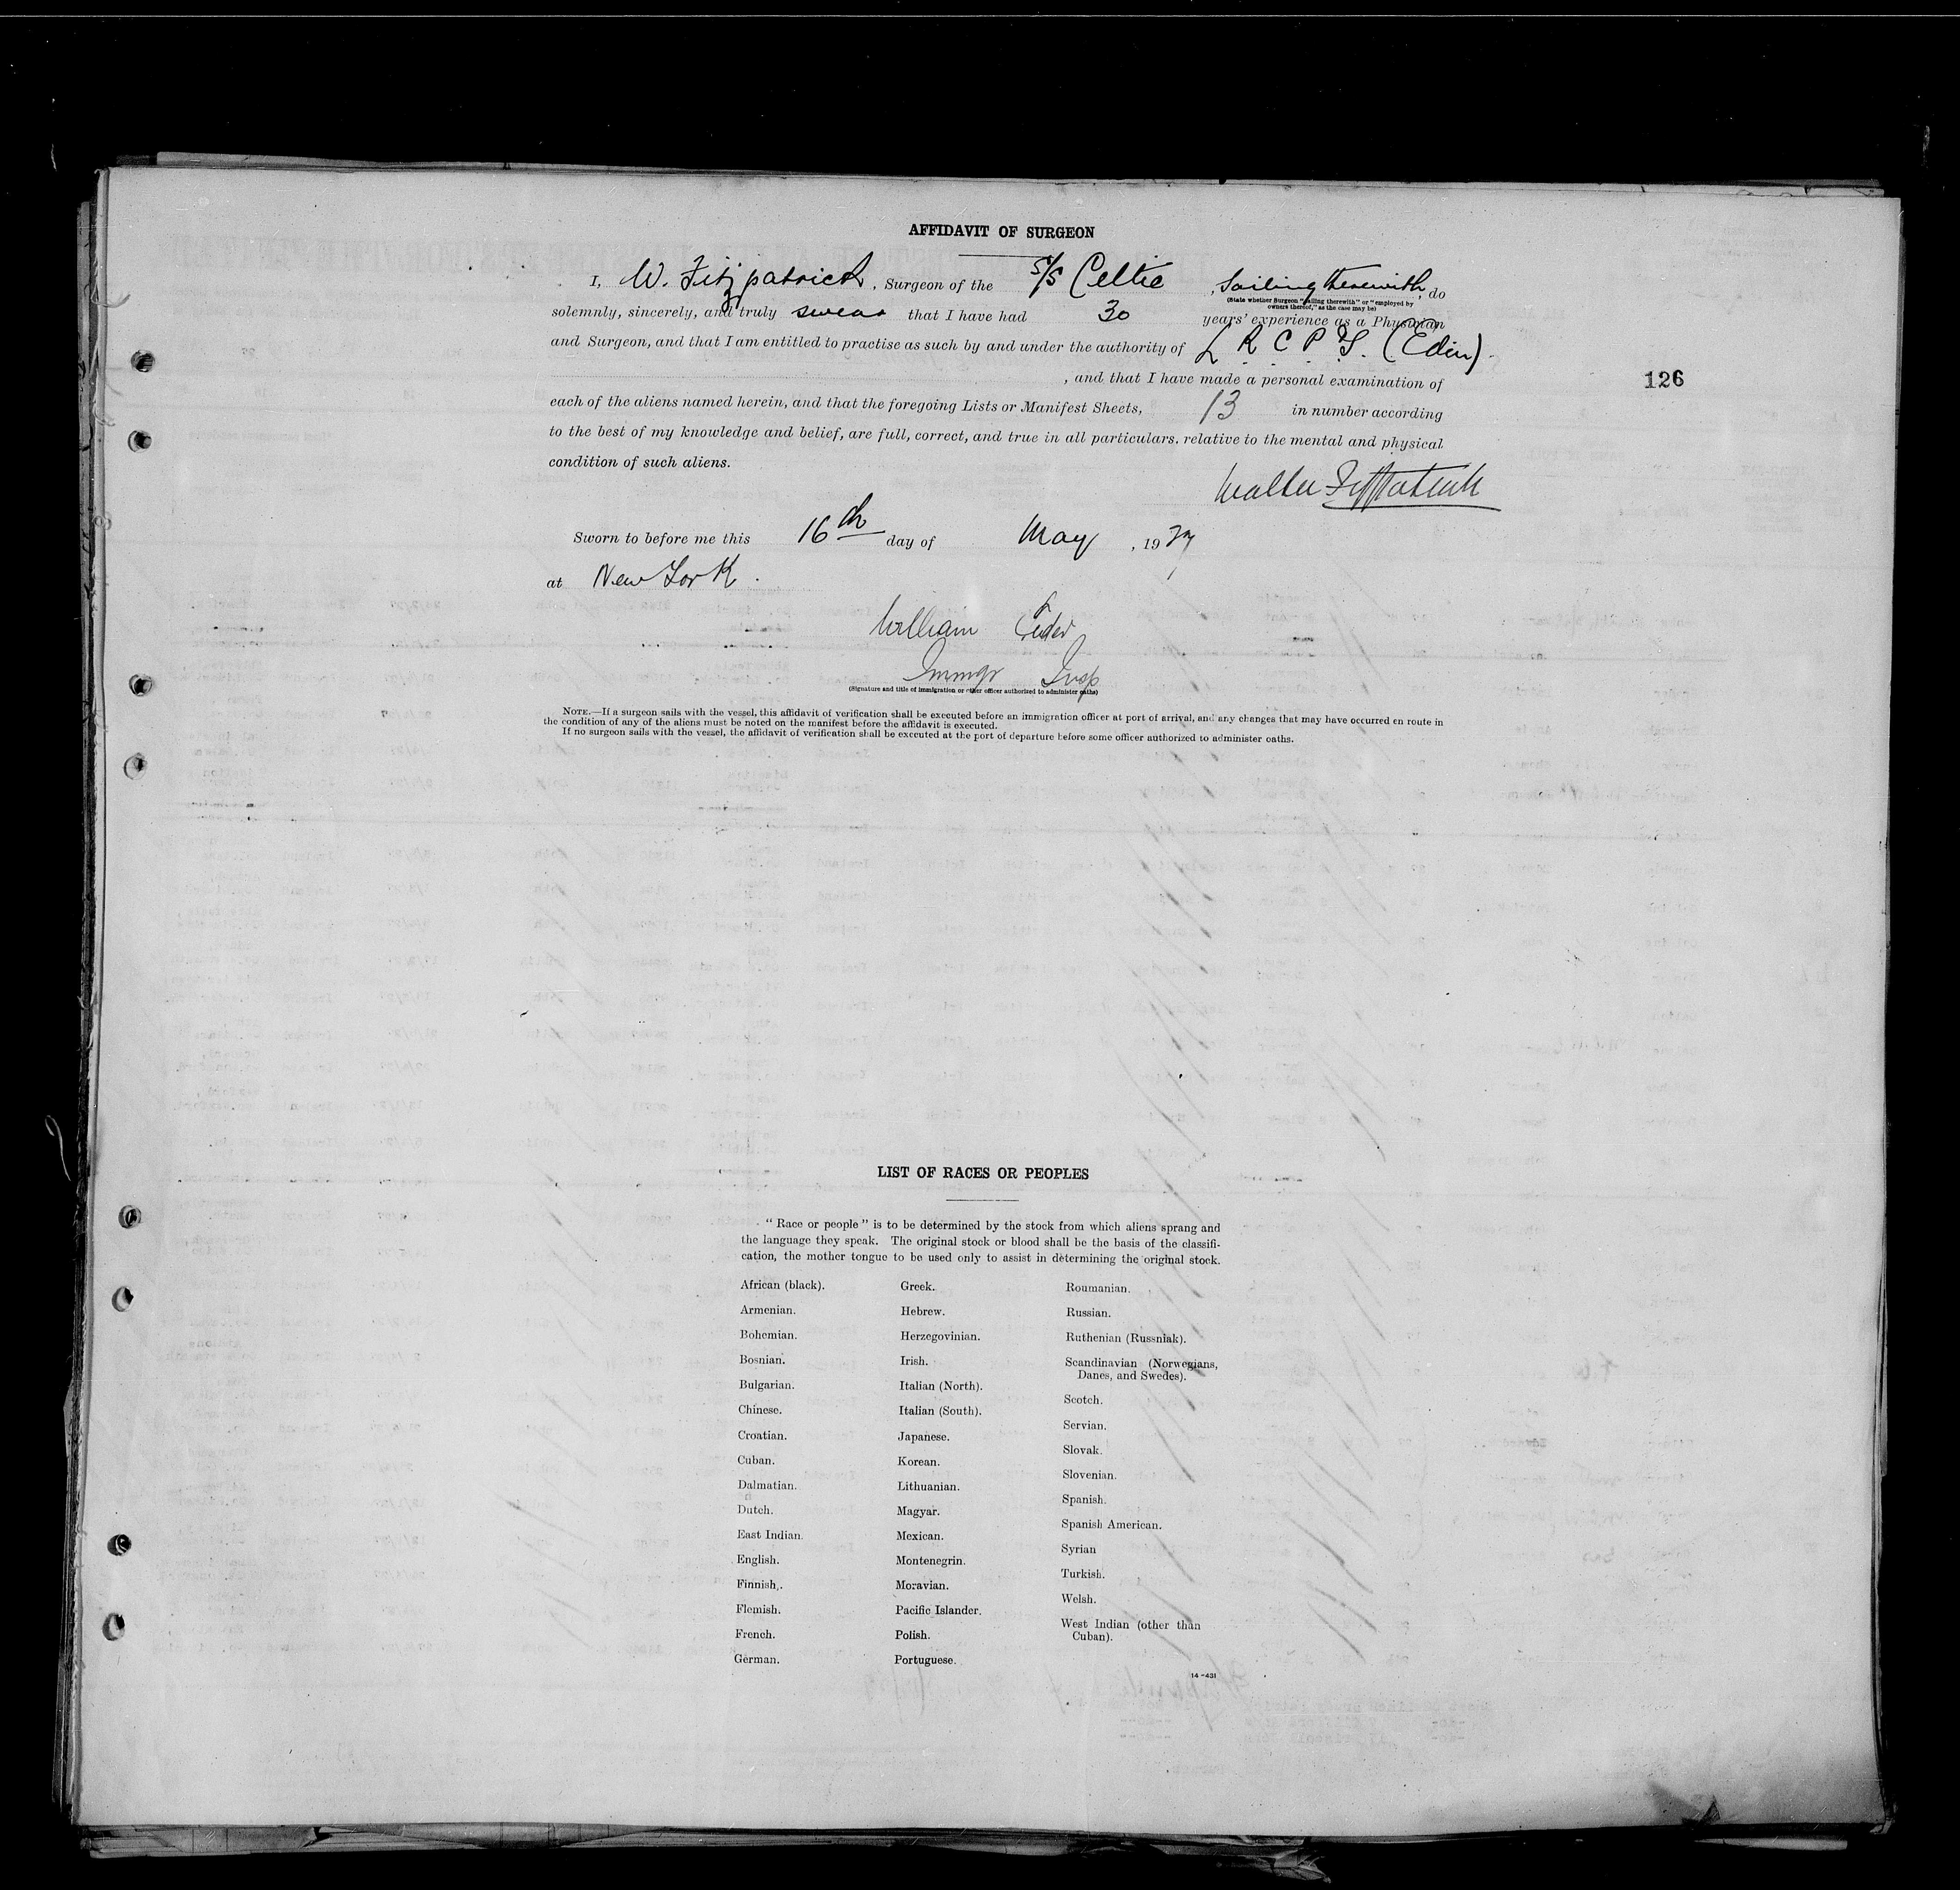 AFFIDAVIT OF SURGEON
I, W. Fitzpatrick, Surgeon of the S/S Celtic, Sailing therewith, do
(State whether Surgeon "sailing therewith" or "employed by owners thereof," as the case may be)
solemnly, sincerely, and truly swear that I have had 30 years' experience as a Physician
and Surgeon, and that I am entitled to practise as such by and under the authority of L R C P S. (Edin).
, and that I have made a personal examination of
126
each of the aliens named herein, and that the foregoing Lists or Manifest Sheets, 13 in number according
to the best of my knowledge and belief, are full, correct, and true in all particulars, relative to the mental and physical
condition of such aliens.
Walter Fitzpatrick
Sworn to before me this 16th day of May, 1927
at New York.
William
Immgr Insp
(Signature and title of immigration or other officer authorized to administer oaths)
NOTE.—If a surgeon sails with the vessel, this affidavit of verification shall be executed before an immigration officer at port of arrival, and any changes that may have occurred en route in
the condition of any of the aliens must be noted on the manifest before the affidavit is executed.
If no surgeon sails with the vessel, the affidavit of verification shall be executed at the port of departure before some officer authorized to administer oaths.
LIST OF RACES OR PEOPLES
"Race or people" is to be determined by the stock from which aliens sprang and
the language they speak. The original stock or blood shall be the basis of the classifi-
cation, the mother tongue to be used only to assist in determining the original stock.
African (black).
Armenian.
Bohemian.
Bosnian.
Bulgarian.
Chinese.
Croatian.
Cuban.
Dalmatian.
Dutch.
East Indian.
English.
Finnish.
Flemish.
French.
German.
Greek.
Hebrew.
Herzegovinian.
Irish.
Italian (North).
Italian (South).
Japanese.
Korean.
Lithuanian.
Magyar.
Mexican.
Montenegrin.
Moravian.
Pacific Islander.
Polish.
Portuguese.
Roumanian.
Russian.
Ruthenian (Russniak).
Scandinavian (Norwegians,
Danes, and Swedes).
Scotch.
Servian.
Slovak.
Slovenian.
Spanish.
Spanish American.
Syrian
Turkish.
Welsh.
West Indian (other than
Cuban).
14-431